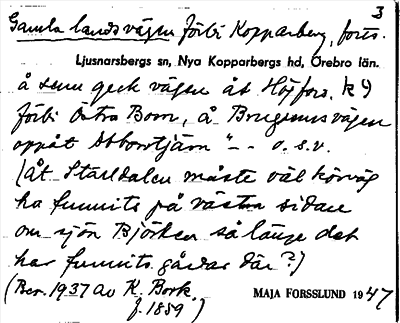 3
Gamla landsvägen förbi Kopparberg, forts.
Ljusnarsbergs sn, Nya Kopparbergs hd, Örebro län.
å senn geck vägen åt Högfors, k 9
förbi Östra Born, å Brugsmsvägen
oppåt Abborrtjärn "-- o.s.v.
(Åt Ställdalen måste väl körväg
ha funnits på västra sidan
om sjön Björken så länge det
har funnits gårdar där?)
(Ber. 1937 av K. Bork
f. 1859.)
MAJA FORSSLUND 1947